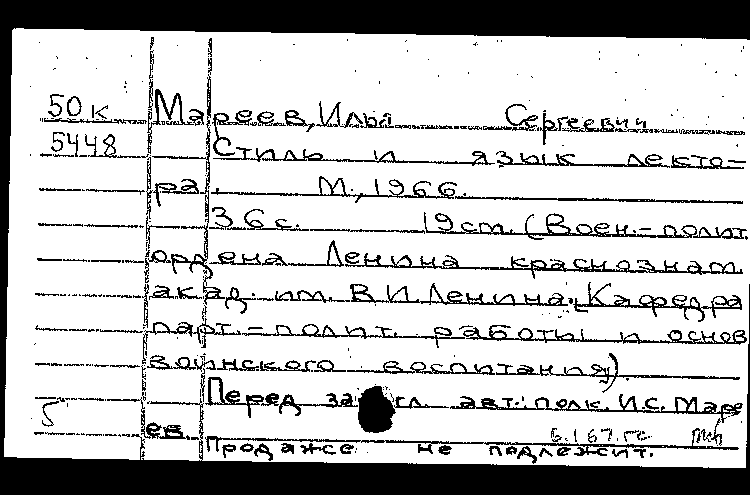 50к Мареев, Илья Сергеевич
5448 Стиль и язык лекто-
ра. М., 1966.
36с. 19cm. (Воен.-полит.
ордена Ленина краснознам.
акад. им. В.И.Ленина. Кафедра
парт.-полит. работы и основ
воинского воспитания).
Перед загл. авт.: полк. И.С. Маре
5
ев.
Продаже не подлежит.